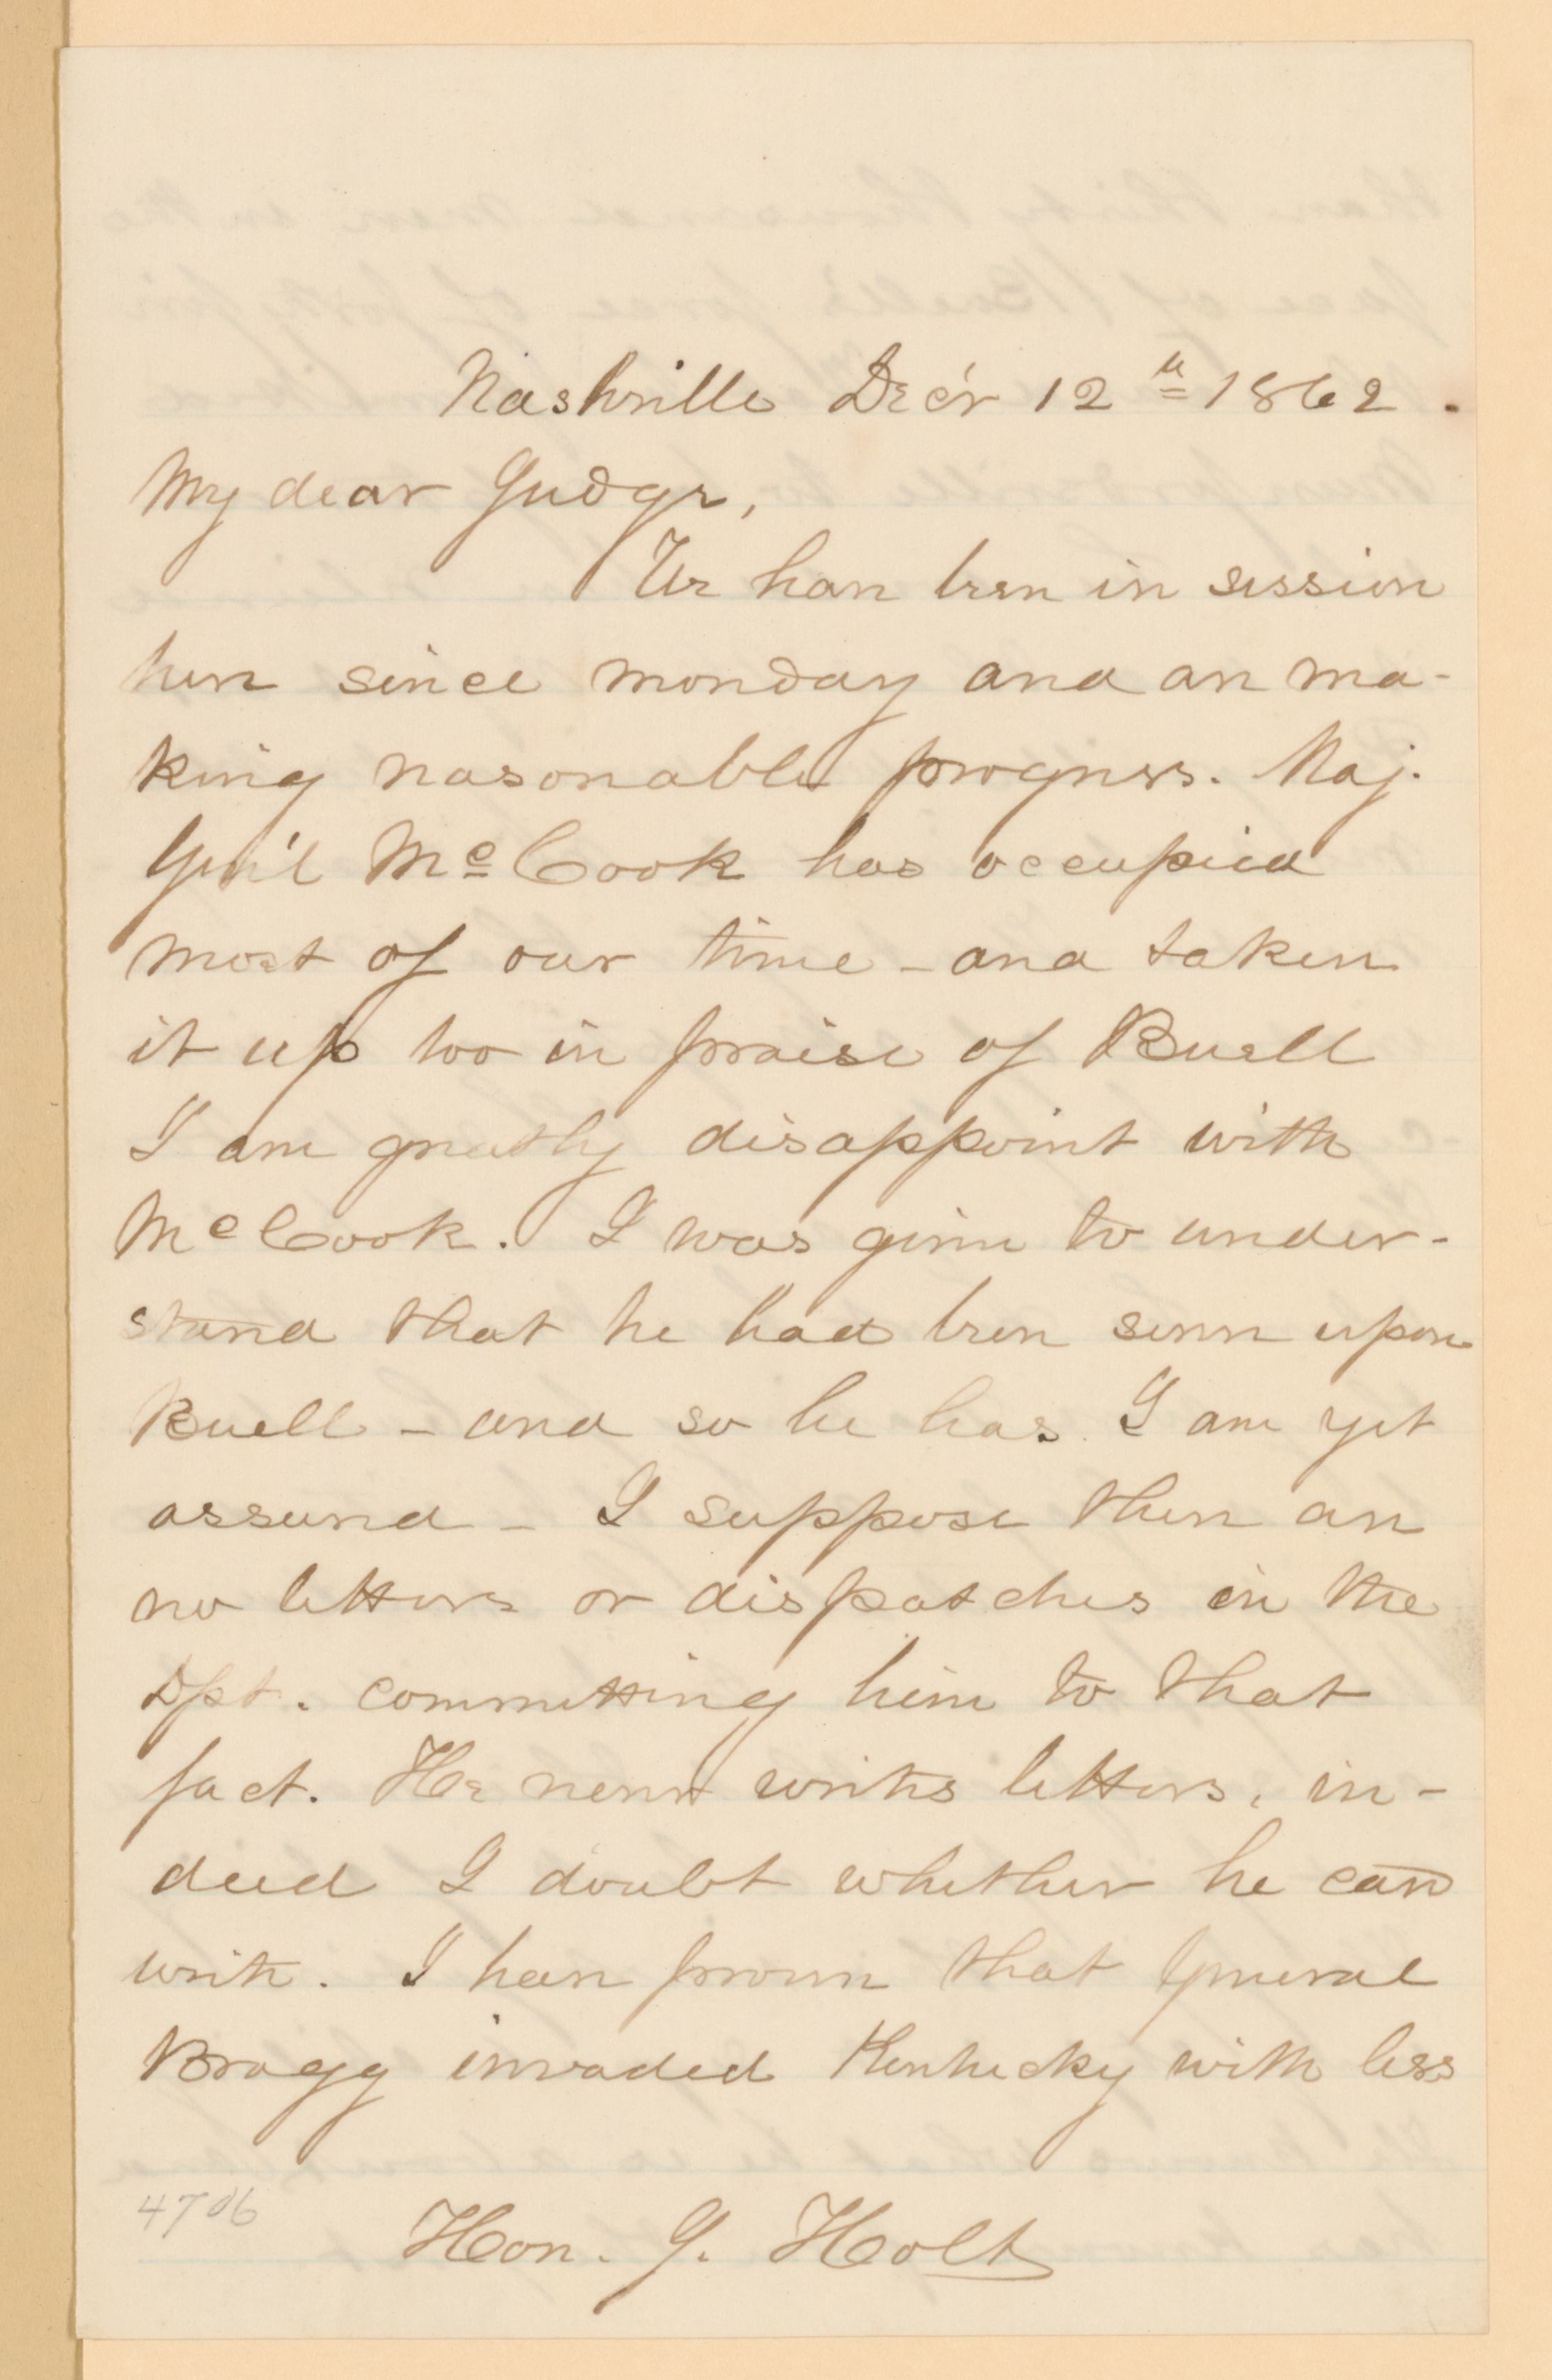 Nashville Dec'r 12th 1862.
My dear Judge,
We have been in session
here since monday and are ma-
king reasonable progress. Maj.
Gen'l McCook has occupied
most of our time - and taken
it up too in praise of Buell
I am greatly disappoint with
McCook. I was given to under-
stand that he had been severe upon
Buell - and so he has I am yet
assured - I suppose there are
no letters or dispatches in the
Dpt. committing him to that
fact. He never writes letters, in-
deed I doubt whether he can
write. I have proven that General
Bragg invaded Kentucky with less
4706
Hon. J. Holt